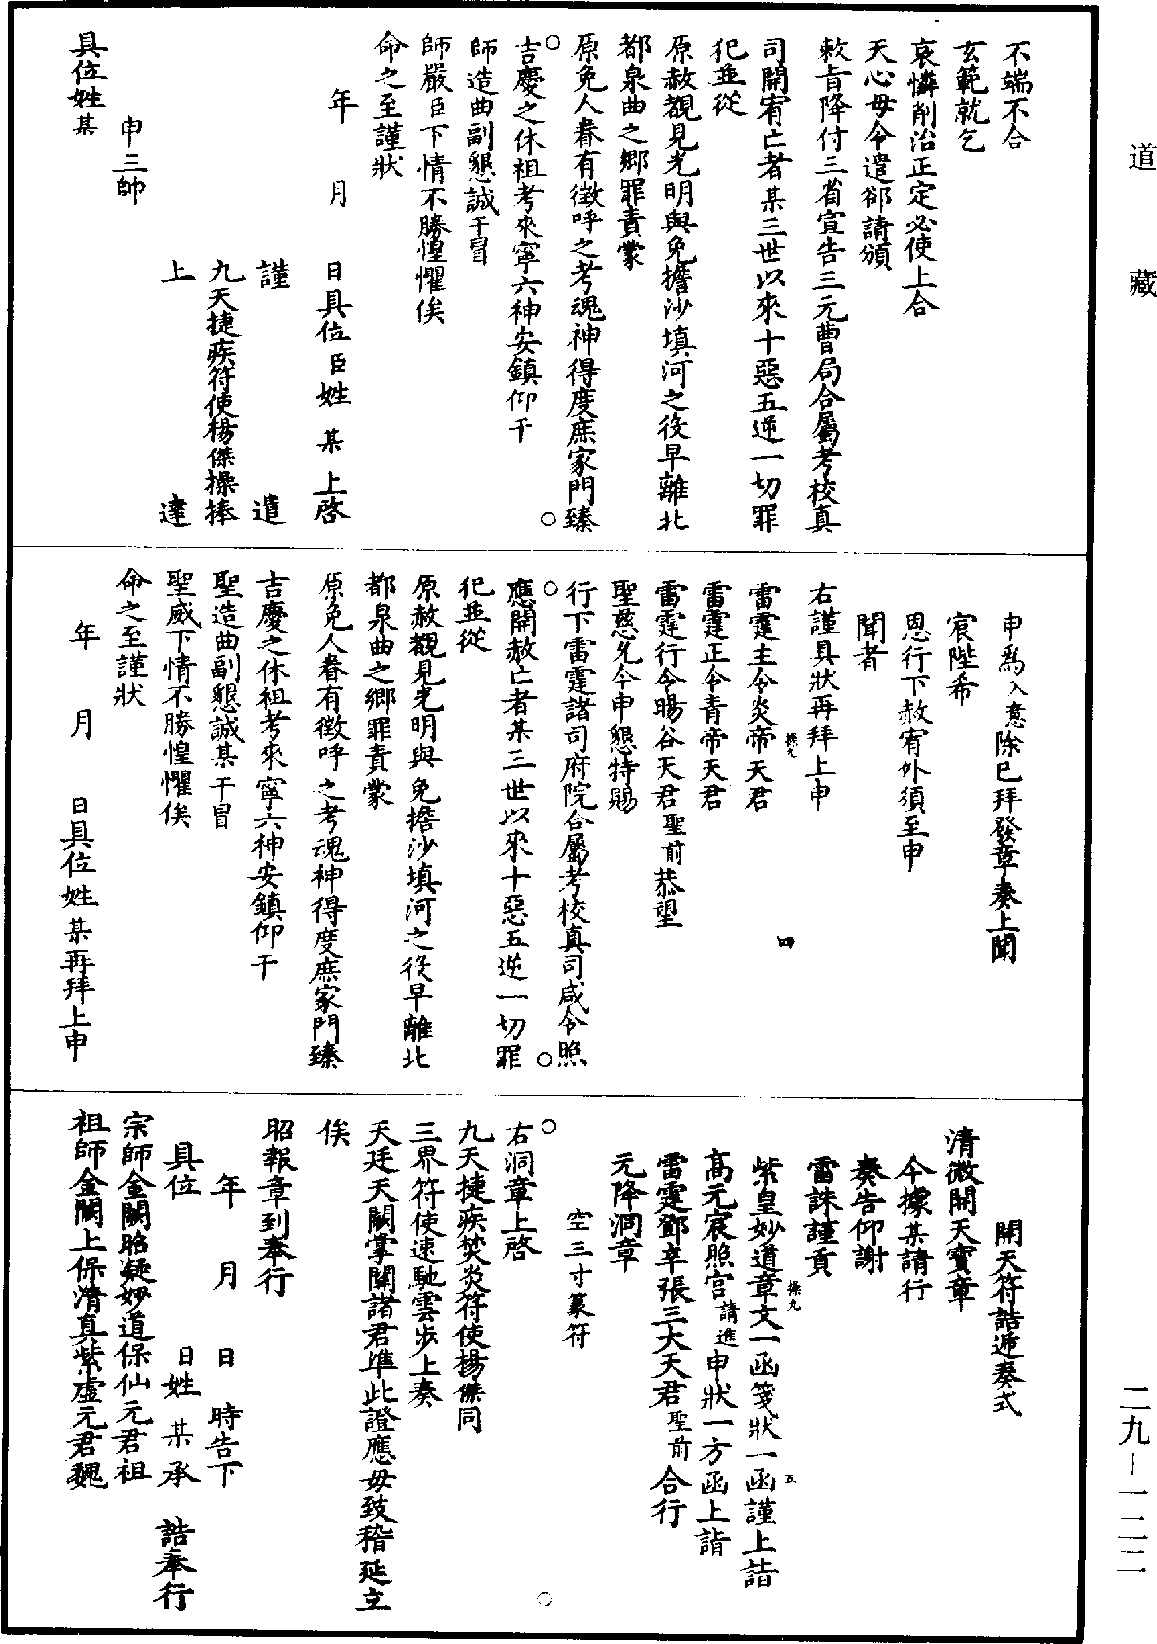 道藏
不端不合
玄範就乞
哀憐削治正定必使上合
天心毋令遣郤請頒
敕旨降付三省宣告三元曹局合屬考校真
司開宥亡者某三世以來十惡五逆一切罪
犯並從
原赦覩見光明與免擔沙填河之役早離北
都泉曲之鄉罪責蒙
原免人眷有徵呼之考魂神得度庶家門臻
吉慶之休祖考來寧六神安鎮仰干
師造曲副懇誠干冒
師嚴臣下情不勝惶懼俟
命之至謹狀
年 月 日具位臣姓某上啓
謹遣
九天捷疾符使楊傑操捧
上達
申三帥
具位姓某
申爲入意除已拜發章奏上聞
宸陛希
恩行下赦宥外須至申
聞者
右謹具狀再拜上申
雷霆主令炎帝天君
雷霆正令青帝天君
雷霆行令暘谷天君聖前恭望
聖慈允今申懇特賜
行下雷霆諸司府院合屬考校真司咸令照
應開赦亡者某三世以來十惡五逆一切罪
犯並從
原赦覩見光明與免擔沙填河之役早離北
都泉曲之鄉罪責蒙
原免人眷有徵呼之考魂神得度庶家門臻
吉慶之休祖考來寧六神安鎮仰干
聖造曲副懇誠某干冒
聖威下情不勝惶懼俟
命之至謹狀
年 月 日具位姓某再拜上申
開天符誥遞奏式
清微開天寶章
今據某請行
奏告仰謝
雷誅謹貢
紫皇妙道章文一函箋狀一函謹上詣
高元宸照宮請進申狀一方函上詣
雷霆鄧辛張三大天君聖前合行
元降洞章
空三寸篆符
右洞章上啓
九天捷疾焚炎符使楊傑同
三界符使速馳雲步上奏
天廷天闕掌關諸君準此證應毋致稽延立
俟
昭報章到奉行
年 月 日 時告下
具位 日姓某承誥奉行
宗師金闕昭凝妙道保仙元君祖
祖師金闕上保清真紫虛元君魏
二九—一二二